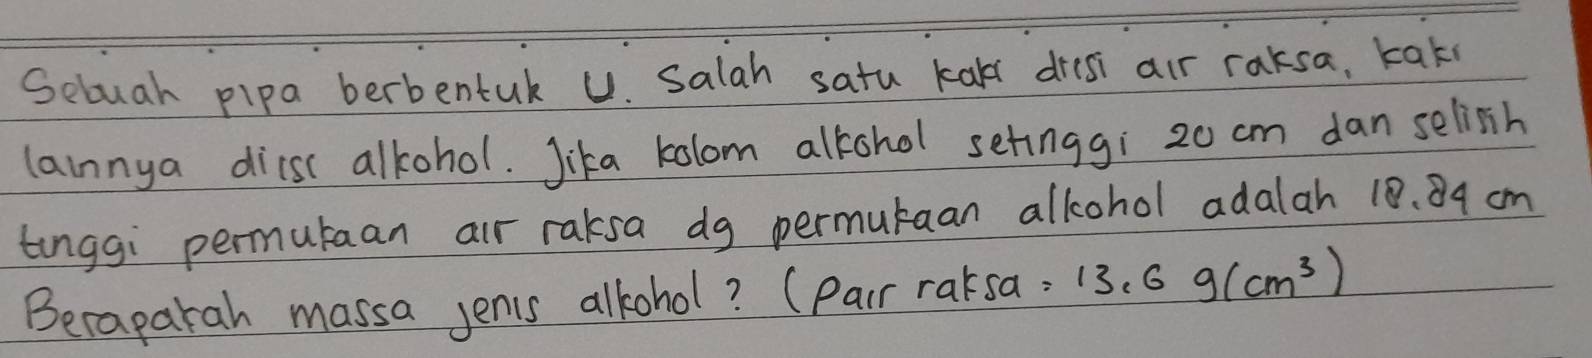 Sebuah pipa berbentuk U. Salah satu kaki diisi air raksa, kaki
lainnya diisi alkohol. Jika kolom alkohol setinggi 20 cm dan selisih
tinggi permukaan air raksa dg permukaan alkohol adalah 18.84 cm
Berapakah massa jenis alkohol? (ρair raksa = 13.6 g/cm³)